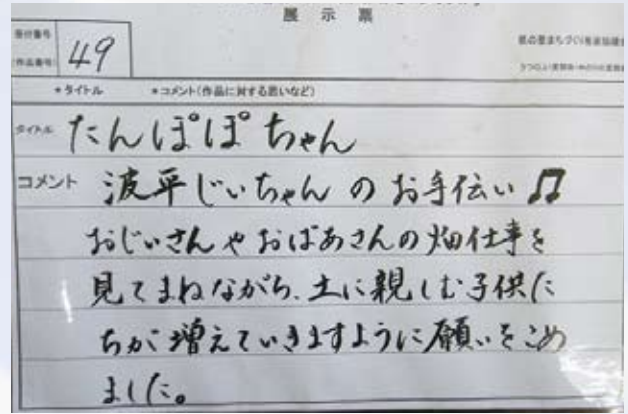 展示票
受付番号
(作品番号)
49
*タイトル *コメント(作品に対する思いなど)
タイトル たんぽぽちゃん
コメント 波平じぃちゃん の お手伝い♫
おじぃさんやおばあさんの畑仕事を
見てまねながら、土に親しむ子供た
ちが増えていきますように願いをこめ
ました。